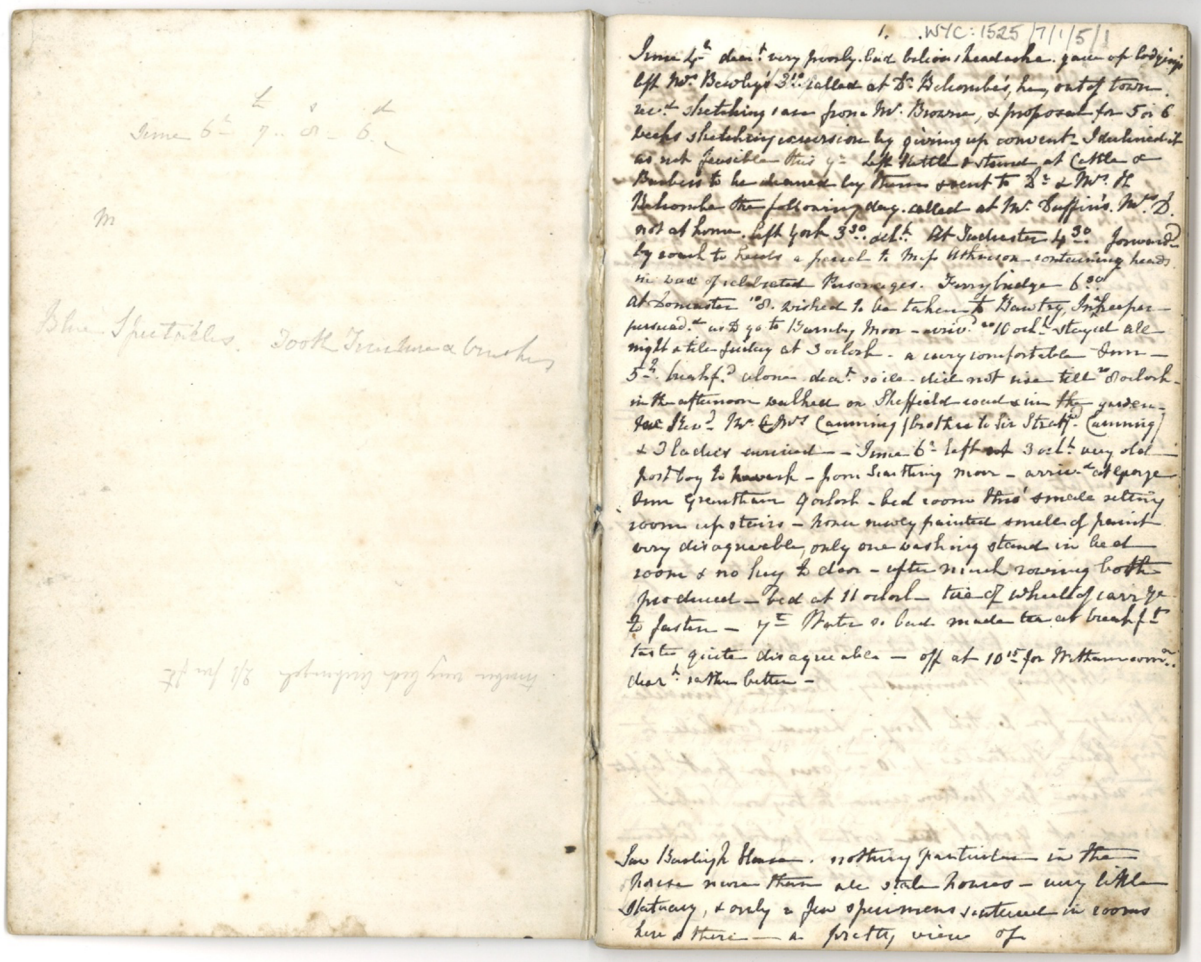 £ s d
June 6th 7 .. 8 - 6
M
Blue Spectacles. Tooth Tincture & brushes
1. WYC:1525/7/1/5/1
June 4th dearst very poorly. bad bilious headache. gave up lodgings
left Mrs Bewley's 3.10 called at Dr Belcombe's, he out of town.
recd sketching case from Mr. Browne, & proposal for 5 or 6
weeks sketching excursion by giving up convent - I declined it
as not feasible this yr - left kettle & stand at Cattle &
Barbers to be cleaned by them & sent to Dr & Mrs H
Belcombe the following day. called at Mr. Duffin's. Mrs D.
not at home. left York 3.30 oclk At Tadcaster 4.30 forwardd
by coach to Leeds a parcel to Miss Atkinson - containing heads
in wax of celebrated Personages. Ferrybridge 6.30
at Doncaster 8. wished to be taken to Bawtry, Innkeeper
persuadd us to go to Barnby Moor - arrivd 10 oclk stayed all
night & till friday at 3 oclock - a very comfortable Inn -
5th breakfd alone dearst so ill - did not rise till 8 oclock -
in the afternoon walked on Sheffield road & in the garden -
The Revd Mr & Mrs Canning (brother to Sir Stratfd Canning)
& 3 ladies arrived - June 6th left at 3 oclk very old
post boy to Newark - from Scarthing moor - arrivd at George
Inn Grantham 9 oclock - bed room thro' small sitting
room upstairs - house newly painted smell of paint
very disagreeable, only one washing stand in bed
room & no key to door - after much rowing both
produced - bed at 11 oclock - tire of wheel of carrge
to fasten - 7th Water so bad made tea at breakfst
taste quite disagreeable - off at 10.15 for Witham com:n
dearst rather better -
Saw Burleigh House. nothing particular in the
house more than all state houses - very little
Statuary, & only a few specimens scattered in rooms
here & there - a pretty view of